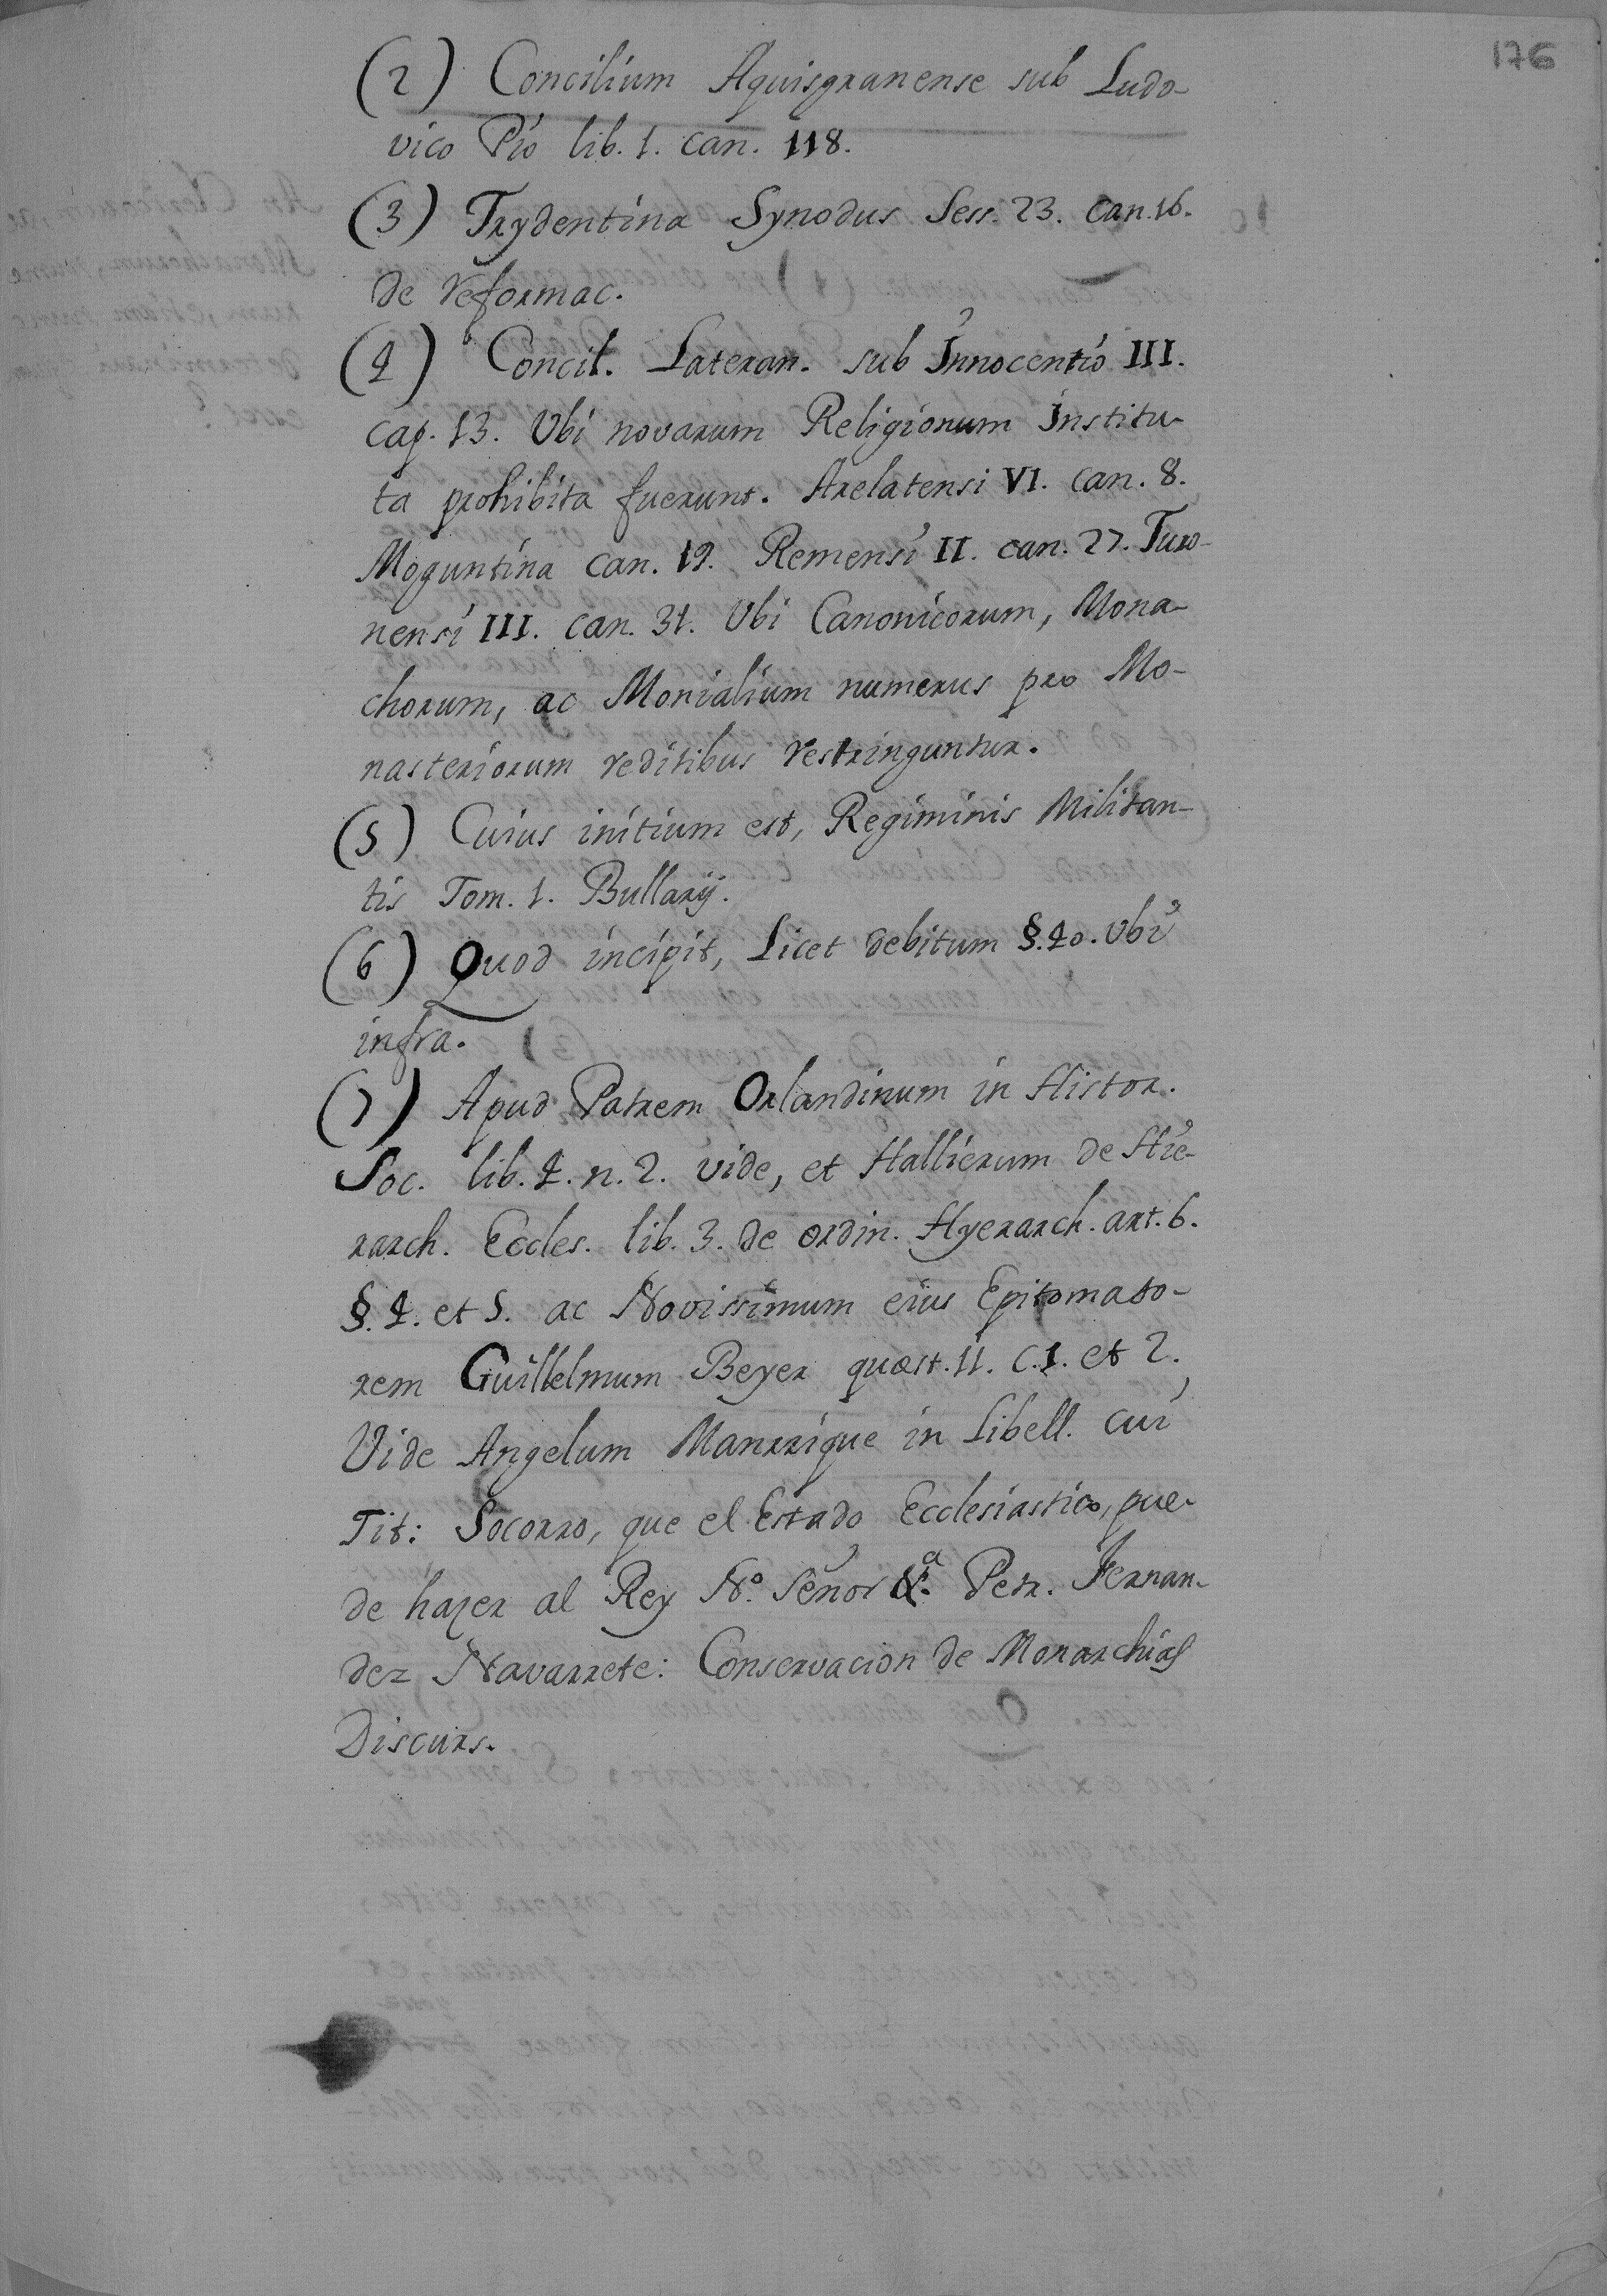 176
(2) Concilium Aquisgranense sub Ludo-
vico Pio lib. 1. can. 118.
(3) Trydentina Synodus Sess. 23. can. 16.
de reformac.
(4) Concil. Lateran. sub Innocentio III.
cap. 13. Ubi novarum Religionum Institu-
ta prohibita fuerunt. Arelatensi VI. can. 8.
Moguntina can. 19. Remensi II. can. 27. Turo-
nensi III. can. 31. Ubi Canonicorum, Mona-
chorum, ac Monialium numerus pro Mo-
nasteriorum reditibus restringuntur.
(5) Cuius initium est, Regiminis Militan-
tis Tom. 1. Bullarij.
(6) Quod incipit, Licet debitum §. 40. Ubi
infra.
(7) Apud Patrem Orlandinum in Histor.
Soc. lib. 4. n. 2. vide, et Hallierum de Hie-
rarch. Eccles. lib. 3. de ordin. Hyerarch. art. 6.
§. 4. et 5. ac Novissimum eius Epitomato-
rem Guillelmum Beyer quæst. 11. c. 1. et 2.
Vide Angelum Manrrique in Libell. cui
Tit: Socorro, que el Estado Ecclesiastico, pue-
de hazer al Rey No. Señor &a. Petr. Fernan-
dez Navarrete: Conservacion de Monarchias
Discurs.